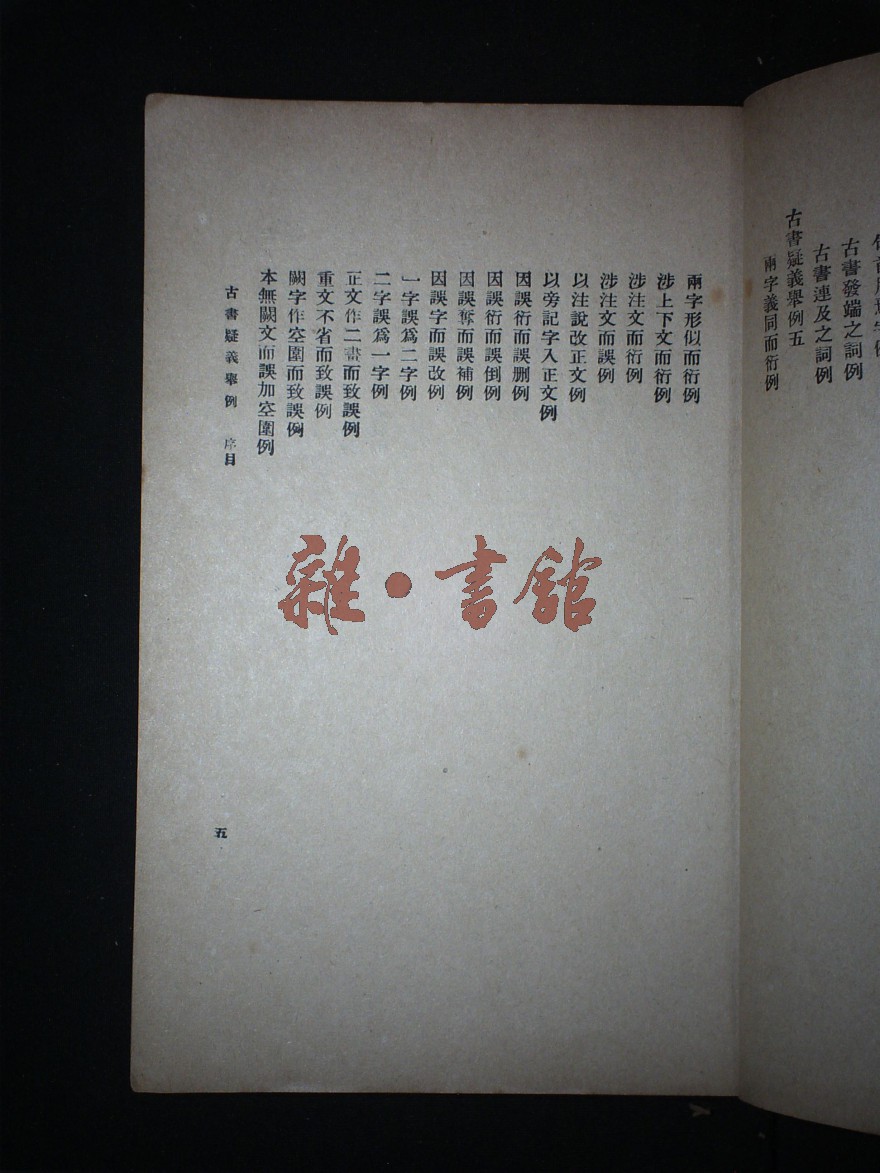 古書發端之詞例
古書連及之詞例
古書疑義舉例五
兩字義同而衍例
兩字形似而衍例
涉上下文而衍例
涉注文而衍例
涉注文而誤例
以注說改正文例
以旁記字入正文例
因誤衍而誤刪例
因誤衍而誤倒例
因誤奪而誤補例
因誤字而誤改例
一字誤爲二字例
二字誤爲一字例
正文作二畫而致誤例
重文不省而致誤例
闕字作空圍而致誤例
本無闕文而誤加空圍例
古書疑義舉例 序目
五
雜·書館